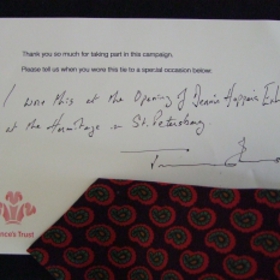 Thank you so much for taking part in this campaign.
Please tell us when you wore this tie to a special occasion below.
I wore this at the Opening of Dennis Hoppers
at the Hermitage in St. Petersburg.
nce's Trust